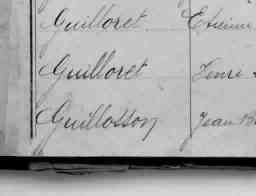 Guilloret Etienne
Guilloret Henri
Guillosson Jean